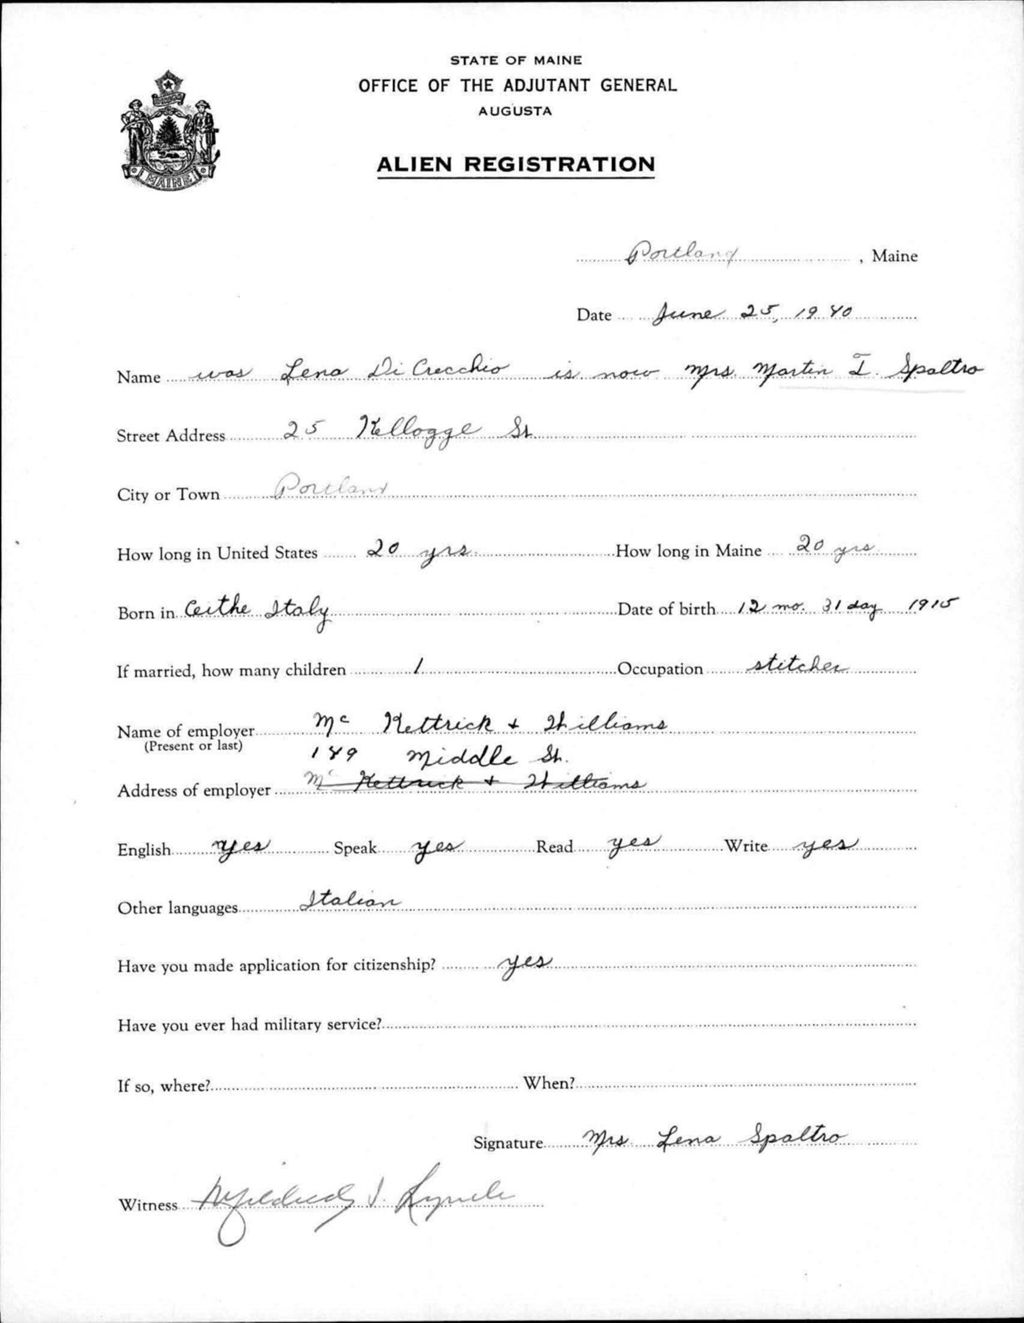 STATE OF MAINE
OFFICE OF THE ADJUTANT GENERAL
AUGUSTA
ALIEN REGISTRATION
MAINE
Portland, Maine
Date June 25, 1940
Name was Lena Di Crecchio is now Mrs. Martin T. Spaltro
Street Address 25 Kellogge St.
City or Town Portland
How long in United States 20 yrs. How long in Maine 20 yrs
Born in Italy Date of birth 12 mo. 31 day 1915
If married, how many children 1 Occupation stitcher
Name of employer Mc Kettrick + Williams
(Present or last)
149 Middle St.
Address of employer Mc Kettrick + Williams
English yes Speak yes Read yes Write yes
Other languages Italian
Have you made application for citizenship? yes
Have you ever had military service?
If so, where? When?
Signature Mrs Lena Spaltro
Witness Mildred J.